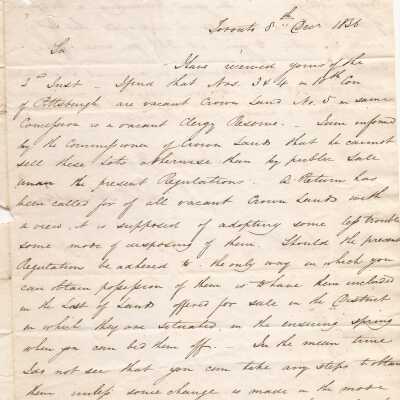 Toronto 8th Decr 1836
Sir
Have received yours of the
3rd Inst - I find that Nos. 3 & 4 in 10th Con
of Pittsburgh are vacant Crown Land No. 5 in same
Concession is a vacant Clergy Reserve. - I am informed
by the Commissioner of Crown Lands that he cannot
sell these Lots otherwise than by public Sale
under the present Regulations. A Return has
been called for of all vacant Crown Lands with
a view it is supposed of adopting some less trouble
some mode of disposing of them. Should the present
Regulation be adhered to the only way in which you
can obtain possession of them is to have them included
in the List of Lands offered for sale in the District
in which they are situated, in the ensuing spring
when you can bid them off. - In the mean time
I do not see that you can take any steps to obtain
them unless some change is made in the mode